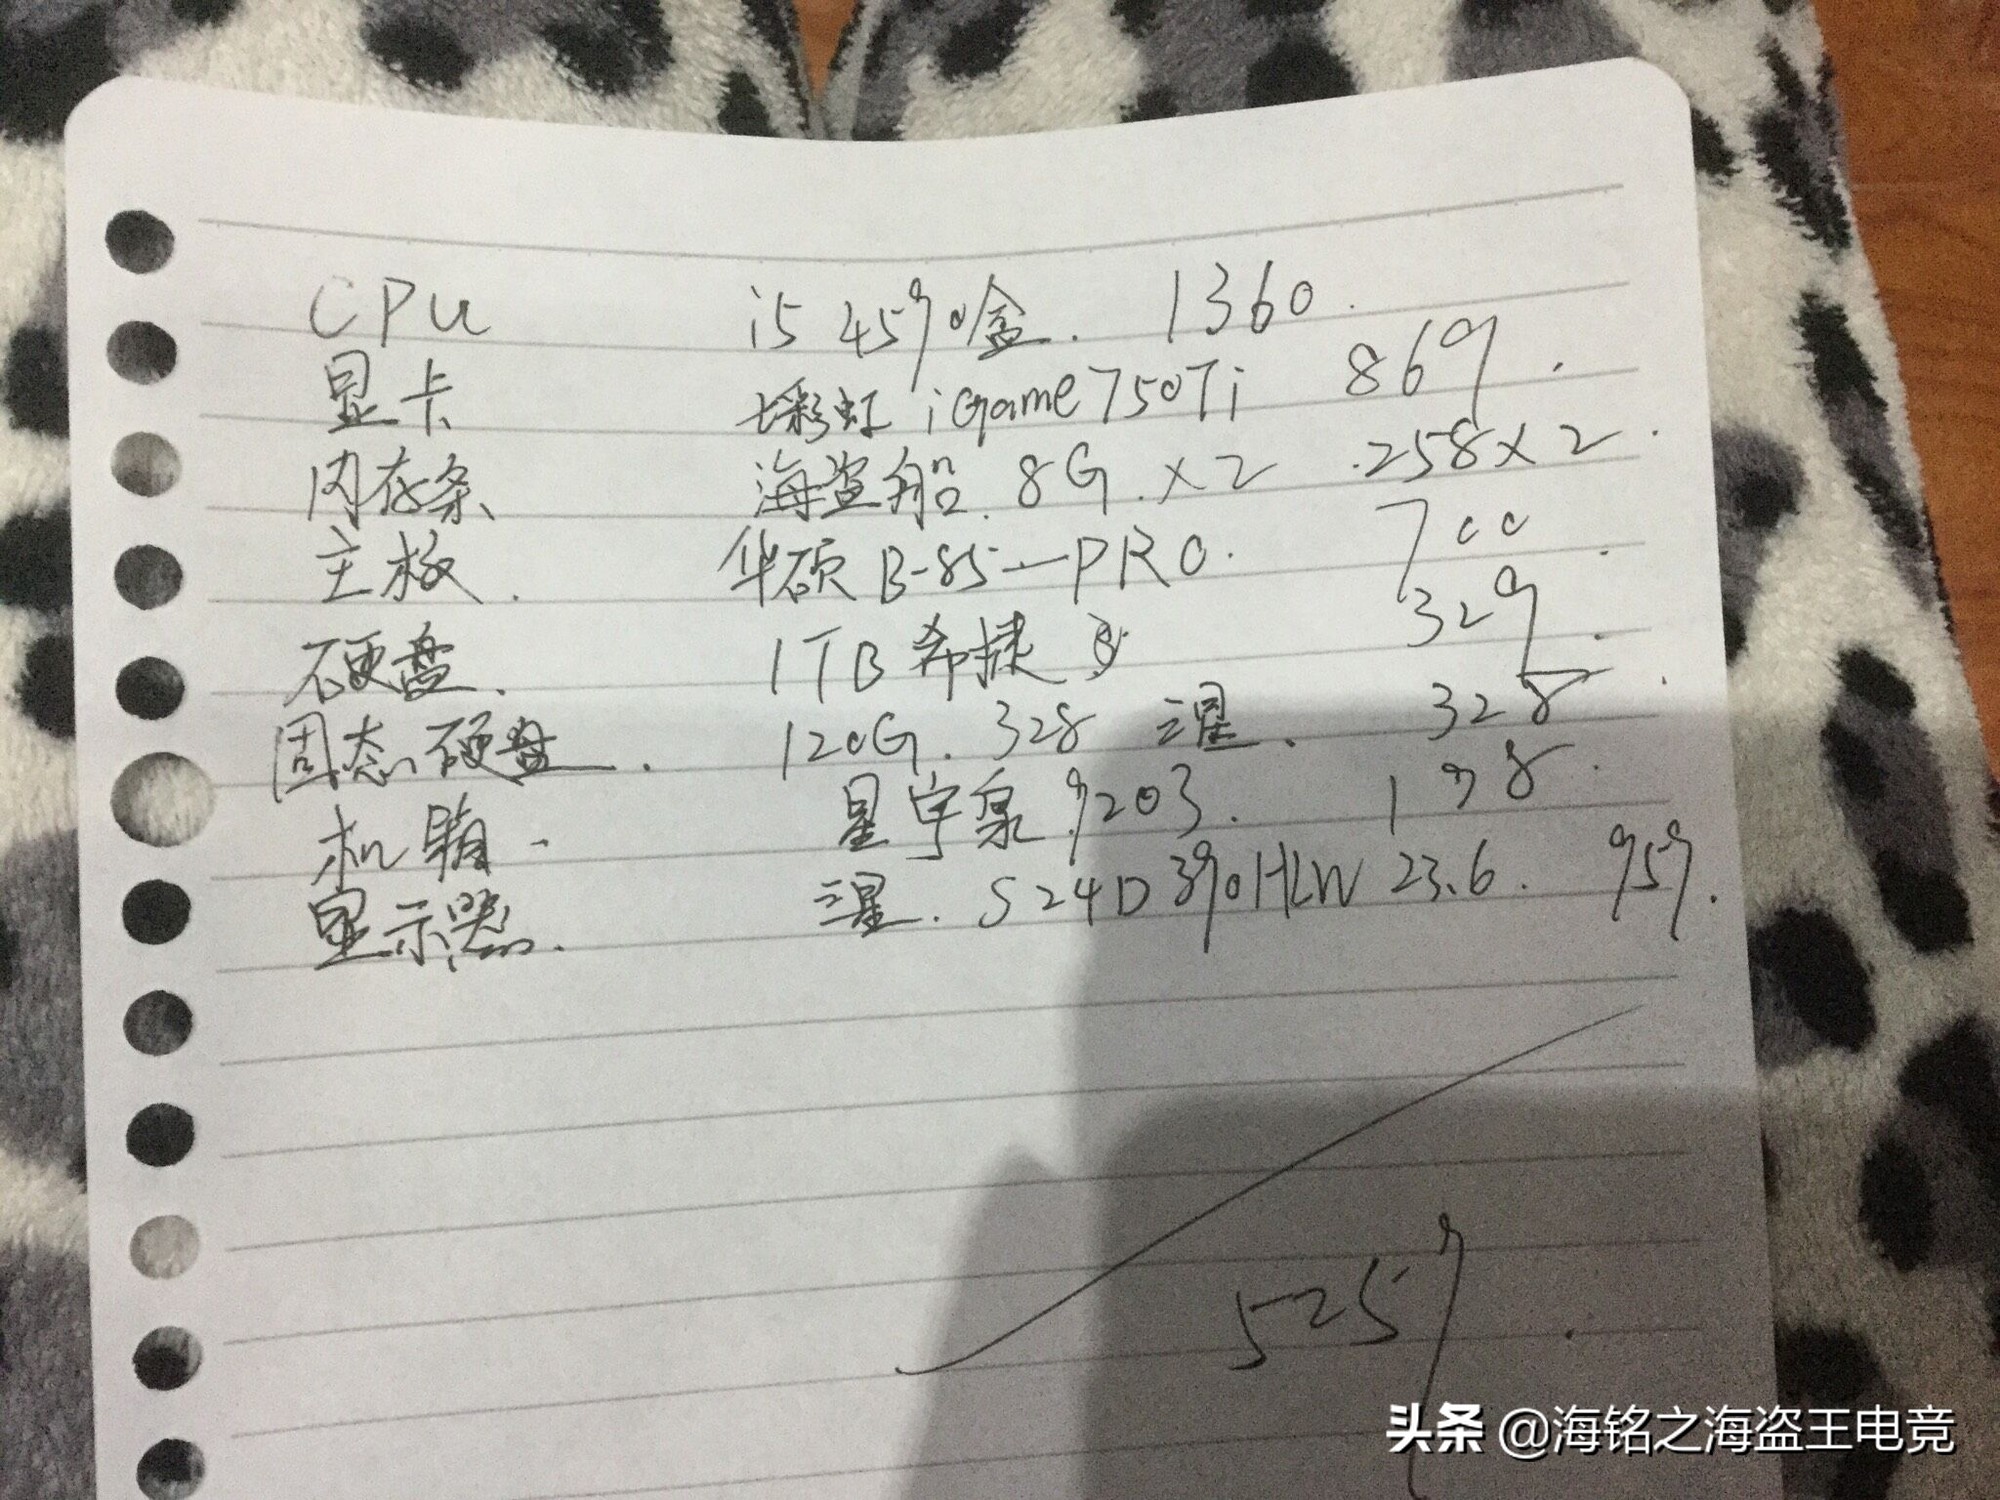 CPU i5 4590盒. 1360.
显卡 七彩虹 iGame750Ti 869.
内存条 海盗船 8G ×2 258×2.
主板. 华硕B-85-PRO. 700.
硬盘. 1TB 希捷 329.
固态硬盘. 120G. 328 三星. 328.
机箱. 星宇泉 9203. 198.
显示器. 三星. S24D390HLW 23.6. 959.
5259.
头条 @海铭之海盗王电竞